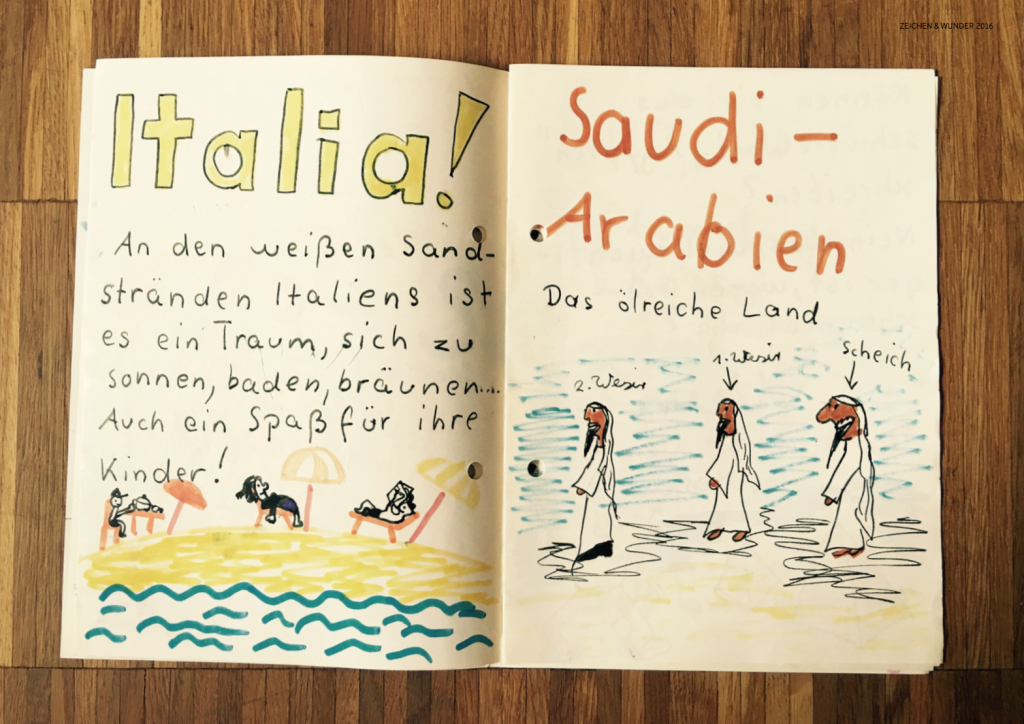 ZEICHEN & WUNDER 2016
Italia!
An den weißen Sand-
stränden Italiens ist
es ein Traum, sich zu
sonnen, baden, bräunen...
Auch ein Spaß für ihre
Kinder!
Saudi-
Arabien
Das ölreiche Land
2. Wesir
1. Wesir
Scheich